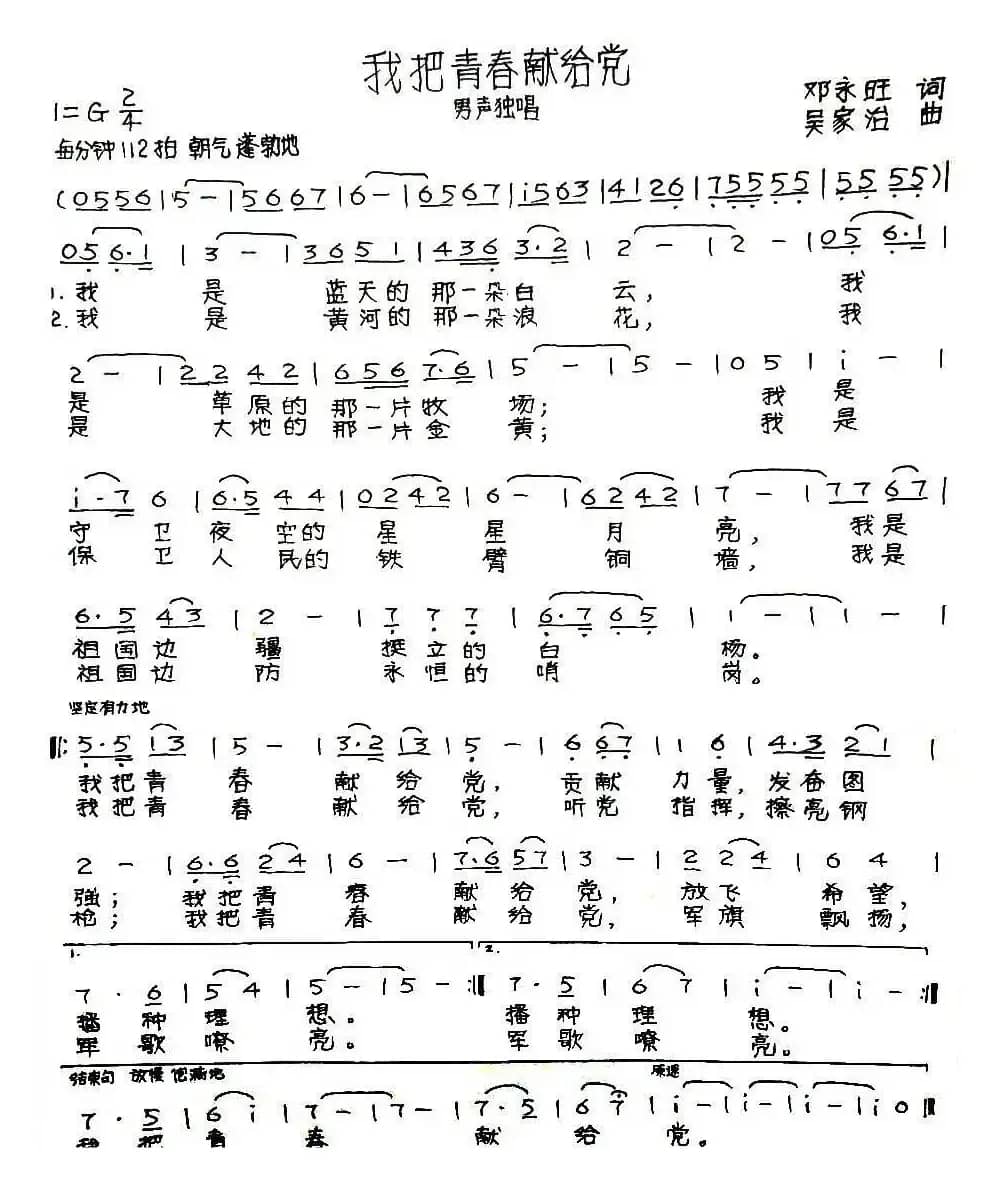 我把青春献给党
1=G 2/4
男声独唱
邓永旺 词
吴家治 曲
每分钟112拍 朝气蓬勃地
(0556|5-|5667|6-|6567|i563|4126|7555 5|55 55)|
056·1|3-|3651|436 3·2|2-|2-|056·1|
1.我 是 蓝天的 那一朵白 云, 我
2.我 是 黄河的 那一朵浪 花, 我
2-|22 42|656 7·6|5-|5-|05|i-|
是 草原的 那一片牧 场; 我 是
是 大地的 那一片金 黄; 我 是
i·7 6|6·5 44|0242|6-|6242|7-|77 67|
守 卫 夜 空的 星 星 月 亮, 我是
保 卫 人 民的 铁 臂 铜 墙, 我是
6·5 43|2-|7 7 7|6·7 65|1-|1-|
祖国边 疆 挺立的 白 杨。
祖国边 防 永恒的 哨 岗。
坚定有力地
‖:5·5 13|5-|3·2 13|5-|6 67|1 6|4·3 21|
我把青 春 献 给 党, 贡献 力量, 发奋图
我把青 春 献 给 党, 听党 指挥, 擦亮钢
2-|6·6 24|6-|7·6 57|3-|2 24|6 4|
强; 我把青 春 献 给 党, 放飞 希望,
枪; 我把青 春 献 给 党, 军旗 飘扬,
1. 2.
7·6|54|5-|5-:‖7·5|67|i-|i-:‖
播种理 想。 播种理 想。
军歌嘹 亮。 军歌嘹 亮。
结束句 放慢 饱满地 原速
7·5|6i|7-|7-|7·5|67|i-|i-|i-|i0‖
我把青 春 献 给 党。